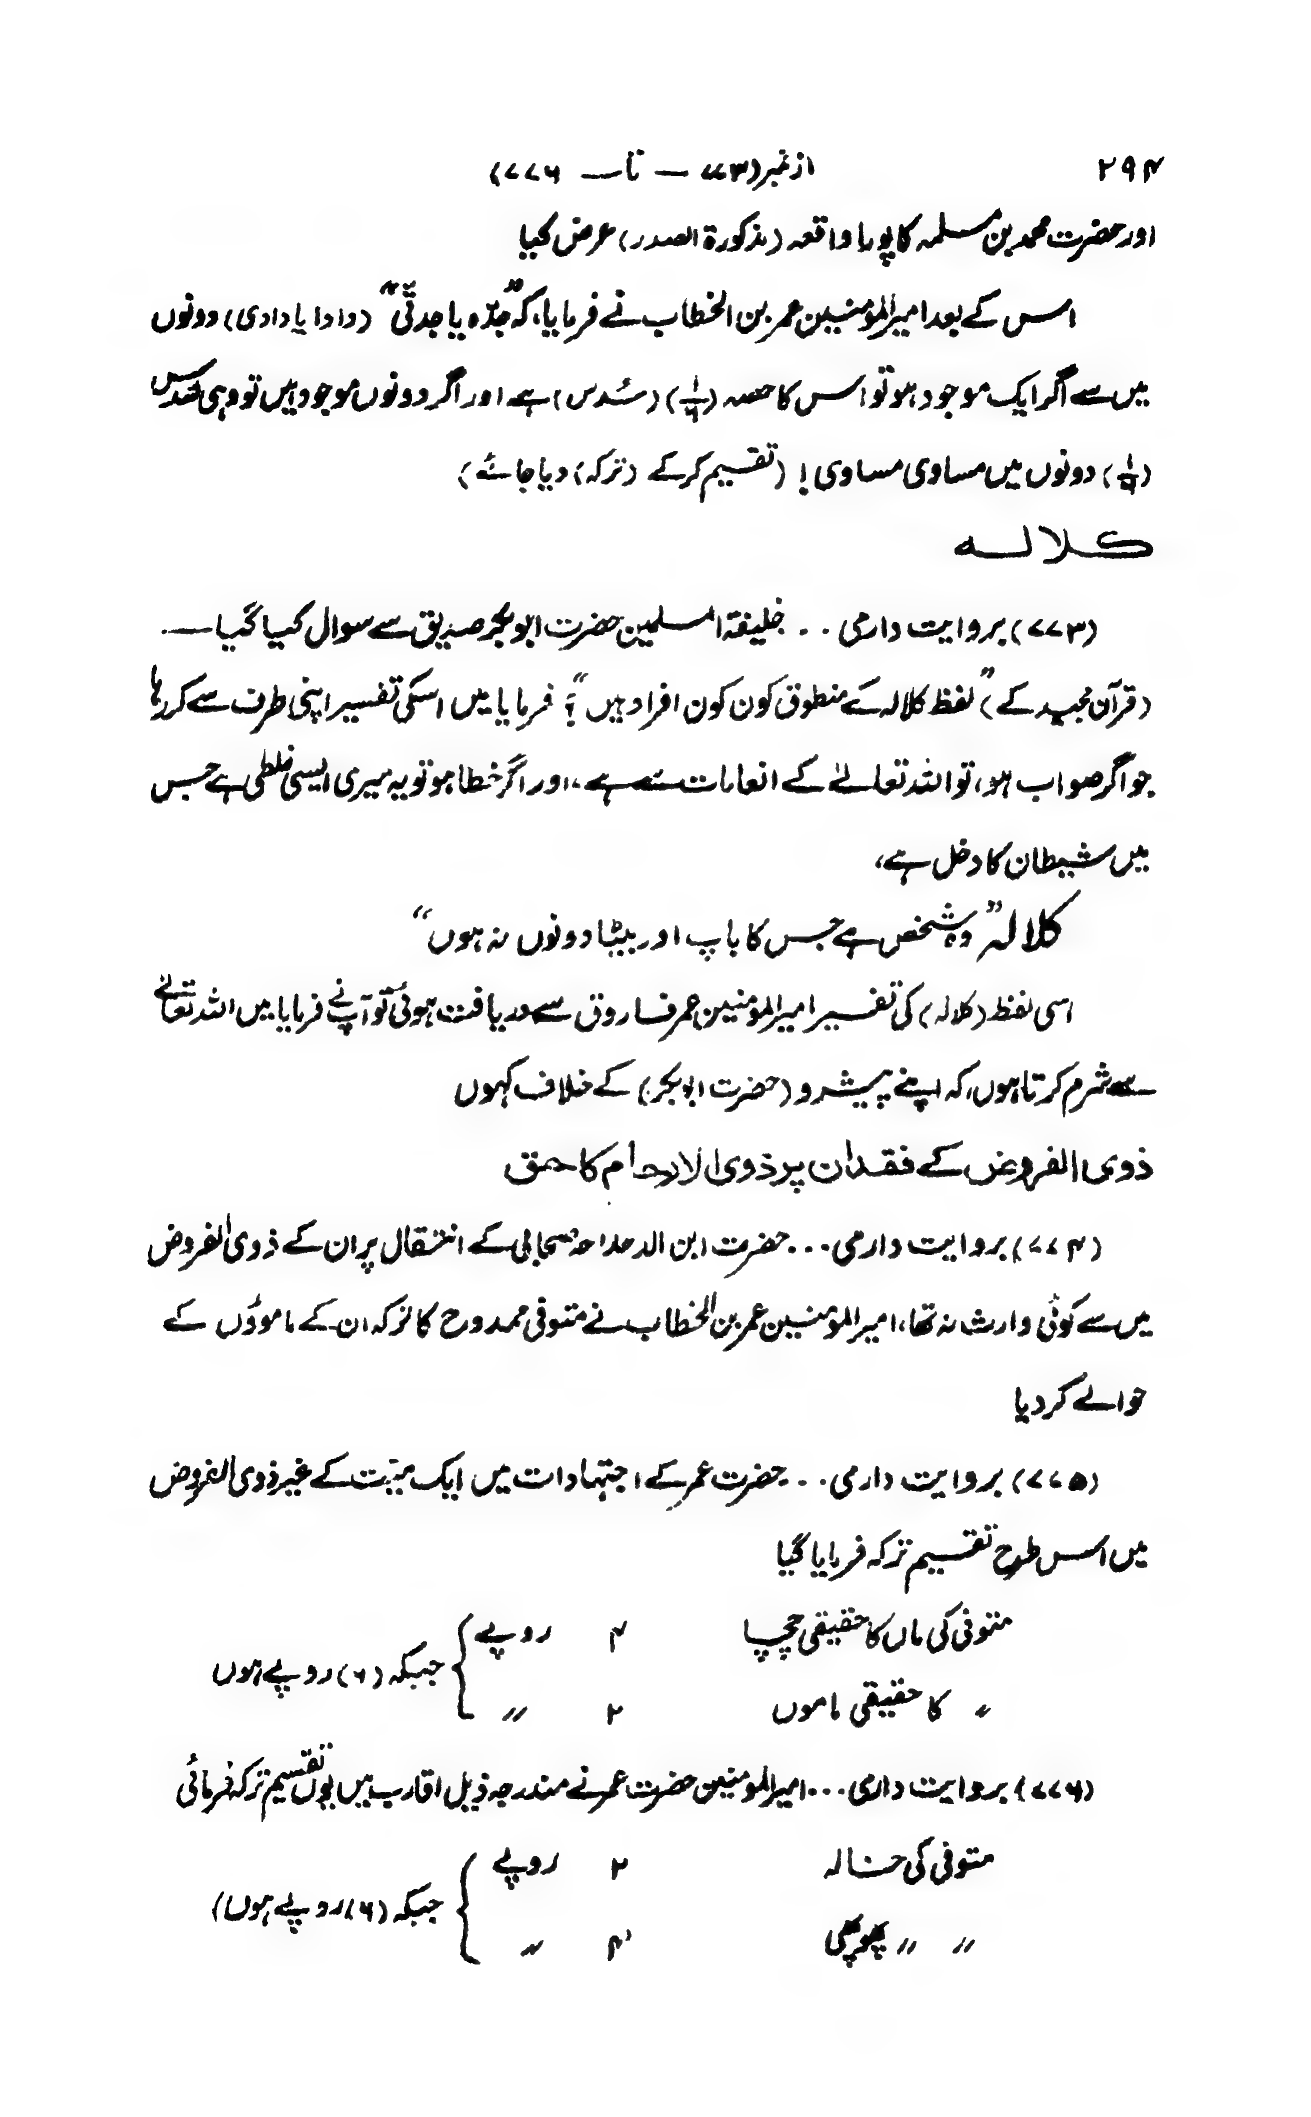 ۲۹۴ از نمبر (۷۷۳ — تا — ۷۷۶)
اور حضرت محمد بن مسلمہ کا پورا واقعہ (مذکورۃ الصدر) عرض کیا
اس کے بعد امیر المومنین عمر بن الخطاب نے فرمایا، کہ ”جدّہ یا جدتی“ (دادا یا دادی) دونوں
میں سے اگر ایک موجود ہو تو اس کا حصہ (۱/۶) (سُدس) ہے اور اگر دونوں موجود ہیں تو وہی سُدس
(۱/۶) دونوں میں مساوی مساوی! (تقسیم کر کے (ترکہ) دیا جائے)
کلالہ
(۷۷۳) بروایت دارمی . . . خلیفۃ المسلمین حضرت ابوبکر صدیق سے سوال کیا گیا —
(قرآن مجید کے) ”لفظ کلالہ کے منطوق کون کون افراد ہیں“؟ فرمایا میں اسکی تفسیر اپنی طرف سے کر رہا
جو اگر صواب ہو، تو اللہ تعالےٰ کے انعامات سے ہے، اور اگر خطا ہو تو یہ میری ایسی غلطی ہے جس
میں شیطان کا دخل ہے،
کلالہ ”وہ شخص ہے جس کا باپ اور بیٹا دونوں نہ ہوں“
اسی لفظ (کلالہ) کی تفسیر امیر المومنین عمر فاروق سے دریافت ہوئی تو آپ نے فرمایا میں اللہ تعالےٰ
سے شرم کرتا ہوں، کہ اپنے پیشرو (حضرت ابوبکر) کے خلاف کہوں
ذوی الفروض کے فقدان پر ذوی الارحام کا حق
(۷۷۴) بروایت دارمی . . . حضرت ابن الدحداحہ صحابی کے انتقال پر ان کے ذوی الفروض
میں سے کوئی وارث نہ تھا، امیر المومنین عمر بن الخطاب نے متوفی ممدوح کا ترکہ ان کے ماموؤں کے
حوالے کر دیا
(۷۷۵) بروایت دارمی . . . حضرت عمر کے اجتہادات میں ایک میّت کے غیر ذوی الفروض
میں اس طرح تقسیم ترکہ فرمایا گیا
متوفی کی ماں کا حقیقی چچا ۴ روپے } جبکہ (۶) روپے ہوں
〃 کا حقیقی ماموں ۲ 〃
(۷۷۶) بروایت دارمی . . . امیر المومنین حضرت عمر نے مندرجہ ذیل اقارب میں یوں تقسیم ترکہ فرمائی
متوفی کی خالہ ۲ روپے } جبکہ (۶) روپے ہوں)
〃 〃 پھوپھی ۴ 〃